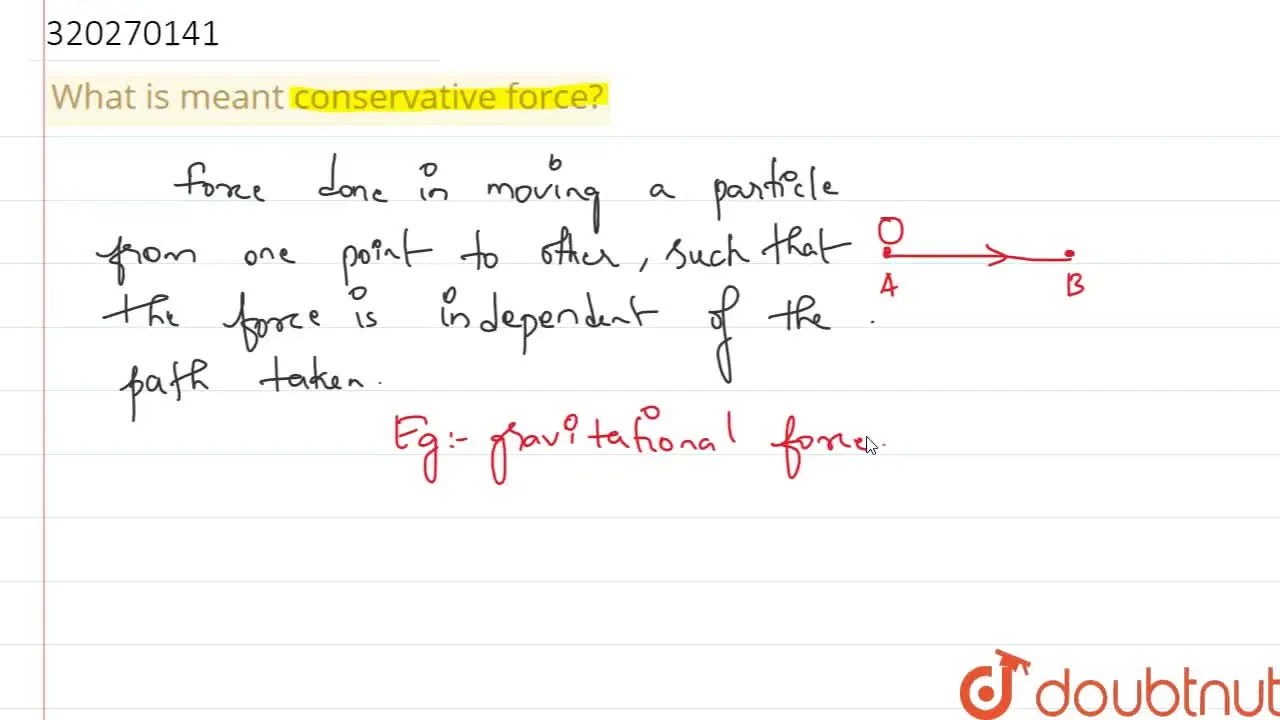 320270141
What is meant conservative force?
force done in moving a particle
from one point to other, such that
the force is independent of the
path taken.
A B
Eg:- gravitational force.
doubtnut